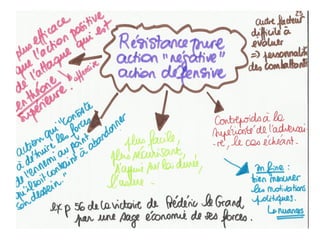 23
plus efficace
que l'action positive
de l'attaque qui est
en théorie offensive
supérieure.
Résistance pure
action "négative"
action défensive
autre facteur
difficile à
évaluer
=> personnalité
des combattants
action qui "consiste
à détruire les forces
de l'ennemi au point
qu'il soit contraint à abandonner
son dessein."
plus facile,
plus sécurisant,
s'appuie sur la durée,
l'usure.
Contrepoids à la
supériorité de l'adversai-
re, le cas échéant.
In fine:
bien mesurer
les motivations
politiques.
nuances
ex p 56 de la victoire de Frédéric le Grand,
par une sage économie de ses forces.